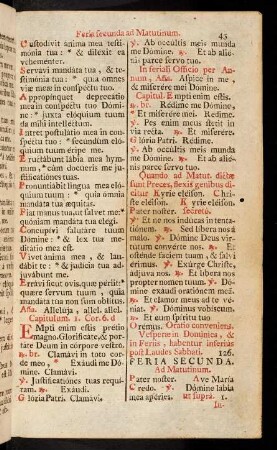 Feriæ secunda ad Matutinum. 45
Custodivit anima mea testi-
monia tua: * & dilexit ea
vehementer.
Servavi mandata tua, & te-
stimonia tua: * quia omnes
viæ meæ in conspectu tuo.
Appropinquet deprecatio
mea in conspectu tuo Dómi-
ne: * juxta eloquium tuum
da mihi intellectum.
Intret postulatio mea in con-
spectu tuo: * secundùm elo-
quium tuum éripe me.
Eructábunt lábia mea hymn-
um, * cùm docueris me justi-
ficationes tuas.
Pronuntiábit lingua mea elo-
quium tuum: * quia omnia
mandata tua æquitas.
Fiat manus tua, ut salvet me: *
quóniam mandata tua elegi.
Concupívi salutáre tuum
Dómine: * & lex tua me-
ditatio mea est.
Vivet anima mea, & lau-
dábit te: * & judicia tua ad-
juvabunt me.
Errávi sicut ovis, quæ periit: *
quære servum tuum, quia
mandata tua non sum oblitus.
Aña. Alleluja, allel. allel.
Capitulum. 1. Cor. 6. d
Empti enim estis pretio
magno. Glorificate, & por-
tate Deum in córpore vestro.
℟. br. Clamávi in toto cor-
de meo, * Exáudi me Dó-
mine. Clamávi.
℣. Justificatiónes tuas requi-
ram. ℟. Exáudi.
Glória Patri. Clamávi.
℣. Ab occultis meis munda
me Dómine. ℟. Et ab alié-
nis parce servo tuo.
In feriali Officio per An-
num, Aña. Aspice in me,
& miserére mei Dómine.
Capitul. Empti enim estis.
℟. br. Rédime me Dómine, *
Et miserére mei. Redime.
℣. Pes meus stetit in
via recta. ℟. Et miserére.
Glória Patri. Rédime.
℣. Ab occultis meis munda
me Dómine. ℟. Et ab alié-
nis parce servo tuo.
Quando ad Matut. dictæ
sunt Preces, flexis genibus di-
citur Kyrie eléison. Chri-
ste eléison. Kyrie eléison.
Pater noster. secretò.
℣. Et ne nos indúcas in tenta-
tiónem. ℟. Sed líbera nos à
malo. ℣. Dómine Deus vir-
tutum converte nos. ℟. Et
osténde faciem tuam, & salvi
érimus. ℣. Exúrge Christe,
ádjuva nos. ℟. Et líbera nos
propter nomen tuum. ℣. Dó-
mine exáudi orationem meam.
℟. Et clamor meus ad te ve-
niat. ℣. Dóminus vobiscum.
℟. Et cum spiritu tuo
Oremus. Oratio conveniens.
Vesperæ in Dominica, &
in Feriis, habentur inferiùs
post Laudes Sabbati. 126.
FERIA SECUNDA.
Ad Matutinum.
Pater noster. Ave María
Credo. ℣. Dómine lábia
mea apéries. ut suprà. 1.
In-